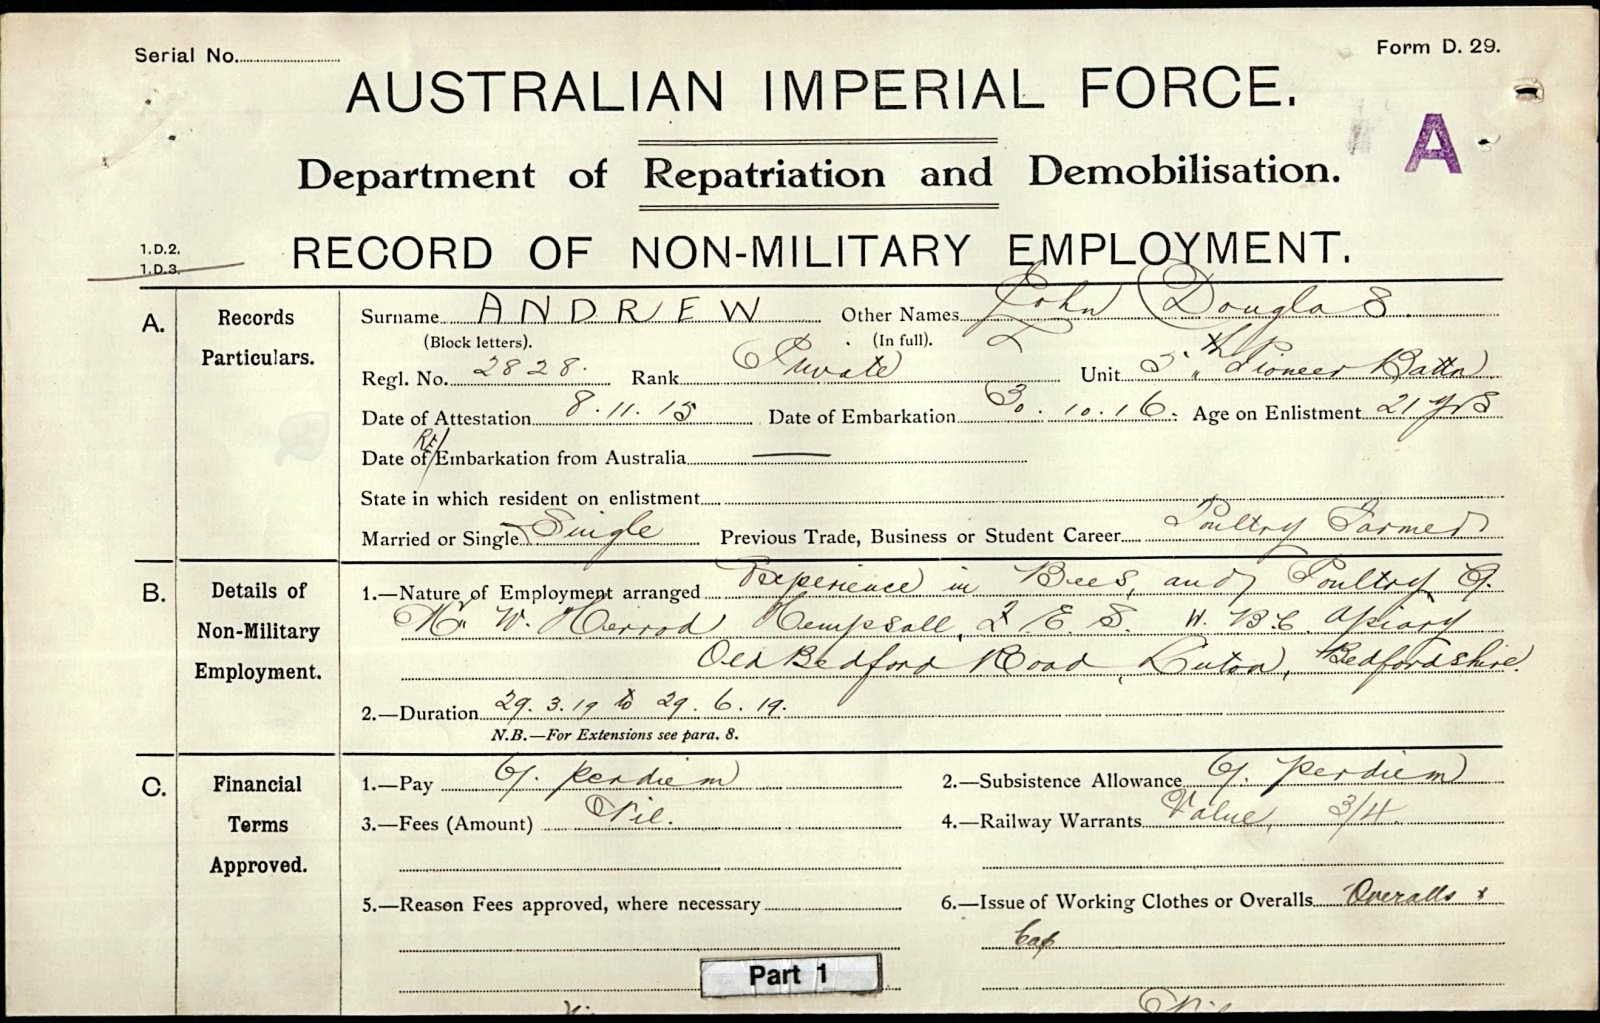 Serial No. Form D. 29.
AUSTRALIAN IMPERIAL FORCE.
A
Department of Repatriation and Demobilisation.
1.D.2.
1.D.3.
RECORD OF NON-MILITARY EMPLOYMENT.
A. Records Particulars.
Surname ANDREW Other Names John Douglas.
(Block letters). (In full).
Regl. No. 2828. Rank Private Unit 5th Pioneer Battn
Date of Attestation 8.11.15 Date of Embarkation 30.10.16. Age on Enlistment 21 yrs
Date of Re/Embarkation from Australia —
State in which resident on enlistment
Married or Single Single Previous Trade, Business or Student Career Poultry Farmer
B. Details of Non-Military Employment.
1.—Nature of Employment arranged Experience in Bees, and Poultry
Mr. W. Herrod Hempsall, F.E.S. W.B.C. Apiary
Old Bedford Road, Luton, Bedfordshire.
2.—Duration 29.3.19 to 29.6.19.
N.B.—For Extensions see para. 8.
C. Financial Terms Approved.
1.—Pay 6/. per diem 2.—Subsistence Allowance 6/. per diem
3.—Fees (Amount) Nil. 4.—Railway Warrants Value, 3/4.
5.—Reason Fees approved, where necessary 6.—Issue of Working Clothes or Overalls Overalls &
Cap
Part 1